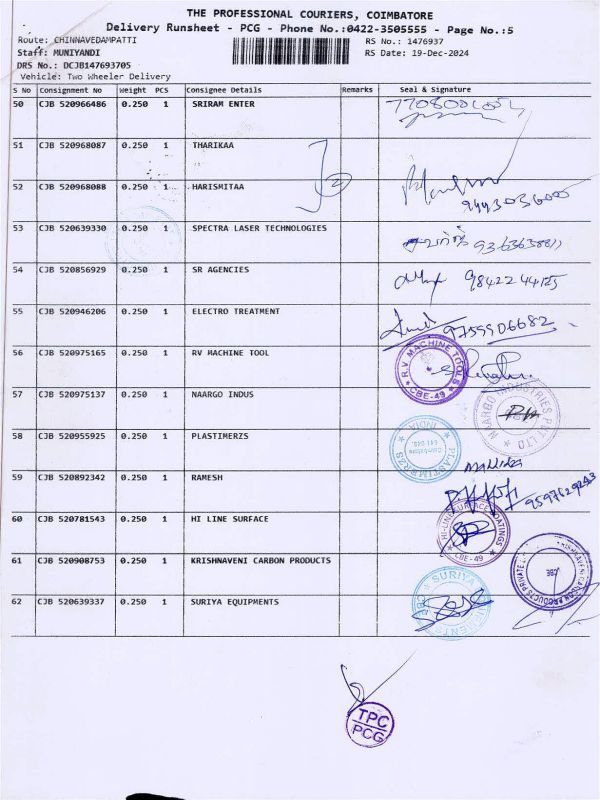 THE PROFESSIONAL COURIERS, COIMBATORE
Delivery Runsheet - PCG - Phone No.:0422-3505555 - Page No.:5
Route: CHINNAVEDAMPATTI
RS No.: 1476937
Staff: MUNIYANDI
RS Date: 19-Dec-2024
DRS No.: DCJB147693705
Vehicle: Two Wheeler Delivery
S No Consignment No Weight PCS Consignee Details Remarks Seal & Signature
50 CJB 520966486 0.250 1 SRIRAM ENTER
51 CJB 520968087 0.250 1 THARIKAA
52 CJB 520968088 0.250 1 HARISMITAA
2
53 CJB 520639330 0.250 1 SPECTRA LASER TECHNOLOGIES
54 CJB 520856929 0.250 1 SR AGENCIES
9842244125
55 CJB 520946206 0.250 1 ELECTRO TREATMENT
9755906682
56 CJB 520975165 0.250 1 RV MACHINE TOOL
R.V. MACHINE TOOLS
CBE-49
57 CJB 520975137 0.250 1 NAARGO INDUS
NAARGO INDUSTRIES PVT LTD
58 CJB 520955925 0.250 1 PLASTIMERZS
PLASTIMERZS
INDIA
59 CJB 520892342 0.250 1 RAMESH
Mallika
60 CJB 520781543 0.250 1 HI LINE SURFACE
HI-LINE SURFACE COATINGS
CBE-49
61 CJB 520908753 0.250 1 KRISHNAVENI CARBON PRODUCTS
KRISHNAVENI CARBON PRODUCTS PRIVATE
CBE
62 CJB 520639337 0.250 1 SURIYA EQUIPMENTS
SURIYA EQUIPMENTS
TPC
PCG